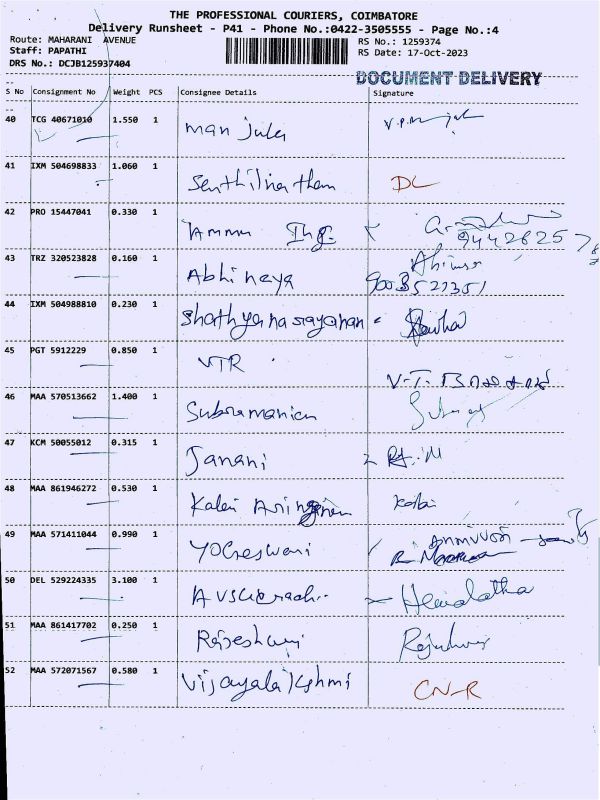 THE PROFESSIONAL COURIERS, COIMBATORE
Delivery Runsheet - P41 - Phone No.:0422-3505555 - Page No.:4
Route: MAHARANI AVENUE
RS No.: 1259374
Staff: PAPATHI
RS Date: 17-Oct-2023
DRS No.: DCJB125937404
DOCUMENT DELIVERY
S No Consignment No Weight PCS Consignee Details Signature
40 TCG 40671010 1.550 1 manjula
41 IXM 504698833 1.060 1 Senthilnathan DL
42 PRO 15447041 0.330 1 Ammu
9442625
43 TRZ 320523828 0.160 1 Abhinaya
9003527351
44 IXM 504988810 0.230 1 Shathyanarayanan
45 PGT 5912229 0.850 1 VTR
46 MAA 570513662 1.400 1 Subramanian
47 KCM 50055012 0.315 1 Janani
48 MAA 861946272 0.530 1 Kalai
49 MAA 571411044 0.990 1 Yogeswari
50 DEL 529224335 3.100 1 Hemalatha
51 MAA 861417702 0.250 1 Rajeshwari
52 MAA 572071567 0.580 1 Vijayalakshmi CN-R